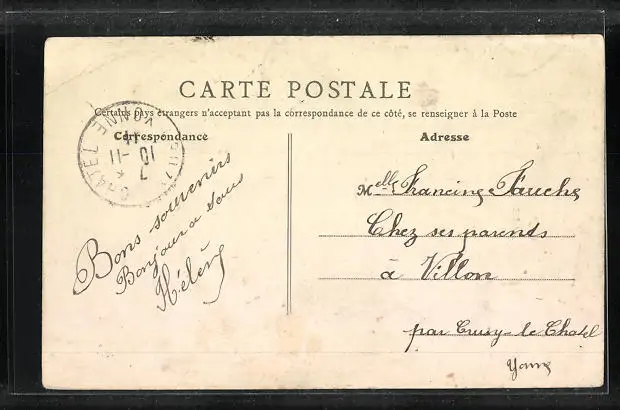 CARTE POSTALE
Certains pays étrangers n'acceptant pas la correspondance de ce côté, se renseigner à la Poste
Correspondance
Adresse
YONNE
CHATEL
7
10 - 11
Bons souvenirs
Bonjour a tous
Hélène
Melle Francine Fauche
Chez ses parents
à Villon
par Cruzy-le-Chatel
Yonne